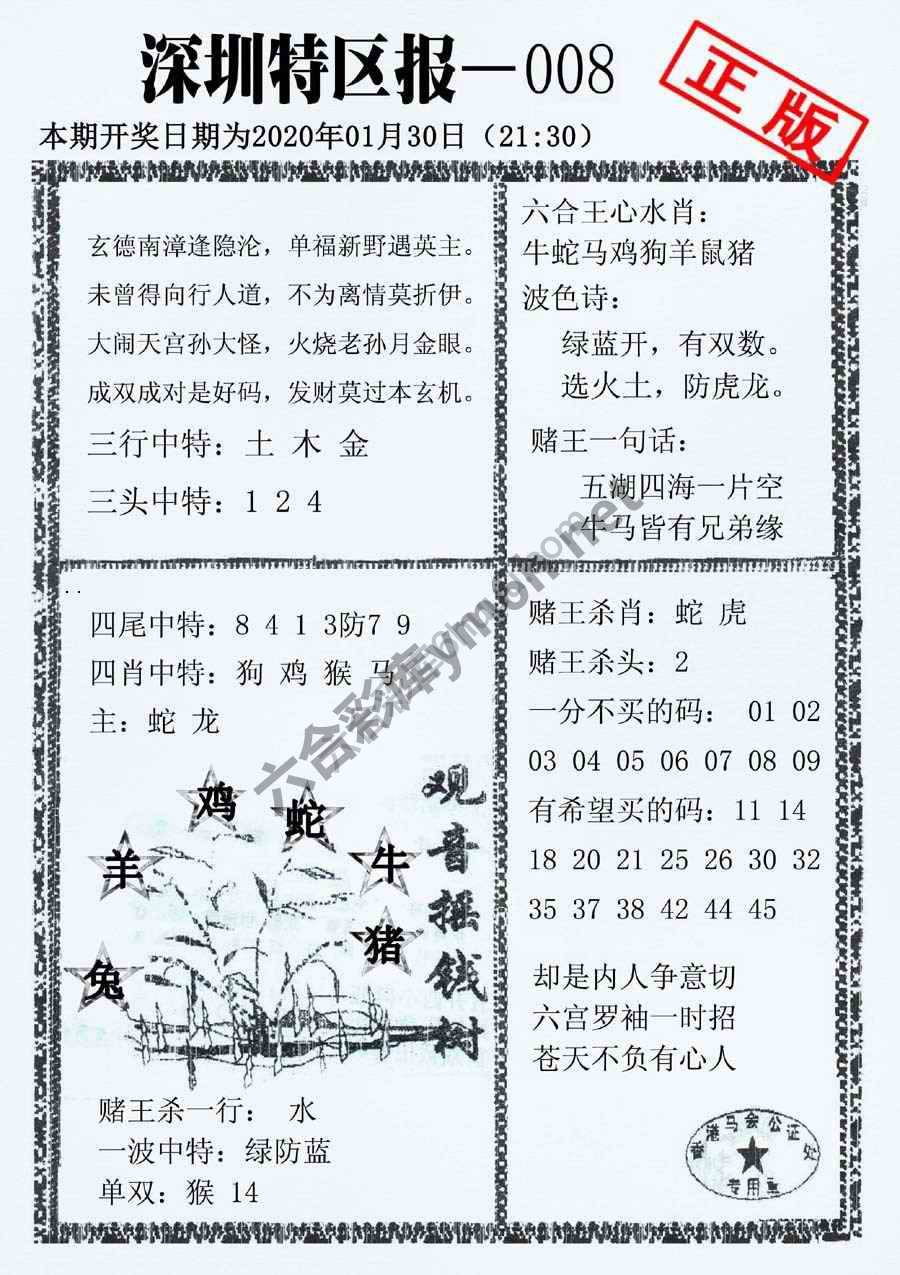 深圳特区报—008
正版
本期开奖日期为2020年01月30日（21:30）
玄德南漳逢隐沦，单福新野遇英主。
未曾得向行人道，不为离情莫折伊。
大闹天宫孙大怪，火烧老孙月金眼。
成双成对是好码，发财莫过本玄机。
三行中特：土 木 金
三头中特：1 2 4
六合王心水肖：
牛蛇马鸡狗羊鼠猪
波色诗：
绿蓝开，有双数。
选火土，防虎龙。
赌王一句话：
五湖四海一片空
牛马皆有兄弟缘
四尾中特：8 4 1 3防7 9
四肖中特：狗 鸡 猴 马
主：蛇 龙
鸡
蛇
羊
牛
猪
兔
观音摇钱树
赌王杀一行： 水
一波中特：绿防蓝
单双：猴 14
赌王杀肖：蛇 虎
赌王杀头：2
一分不买的码： 01 02
03 04 05 06 07 08 09
有希望买的码：11 14
18 20 21 25 26 30 32
35 37 38 42 44 45
却是内人争意切
六宫罗袖一时招
苍天不负有心人
香港马会公证处
专用章
六合彩库ymoh.net